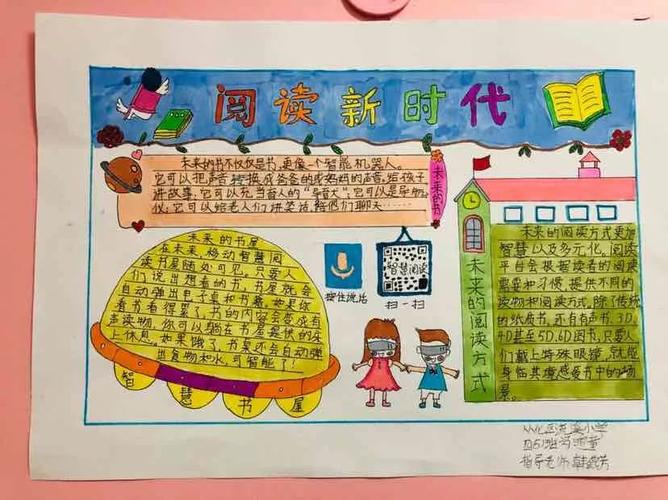 阅读新时代
未来的书不仅仅是书,更像一个智能机器人。
它可以把声音转换成爸爸的或妈妈的声音,给孩子
讲故事,它可以充当盲人的"导盲犬",它可以是导航
仪,它可以给老人们讲笑话,陪他们聊天……
未来的书
未来的书屋
在未来,移动智慧阅
读书屋随处可见,只要人
们说出想看的书,书屋就会
自动弹出电子桌和书籍,如果你
看书看得累了,书的内容会变成有
声读物,你可以躺在书屋提供的床
上休息,如果饿了,书屋还会自动弹
出食物和水,可智能了!
智慧书屋
按住说话
智慧阅读
扫一扫
未来的阅读方式
未来的阅读方式更加
智慧以及多元化。阅读
平台会根据读者的阅读
需要和习惯,提供不同的
读物和阅读方式,除了传统
的纸质书,还有有声书、3D、
4D甚至5D、6D图书,只要人
们戴上特殊眼镜,就能
身临其境感受书中的场
景。
从化区流溪小学
指导老师:韩